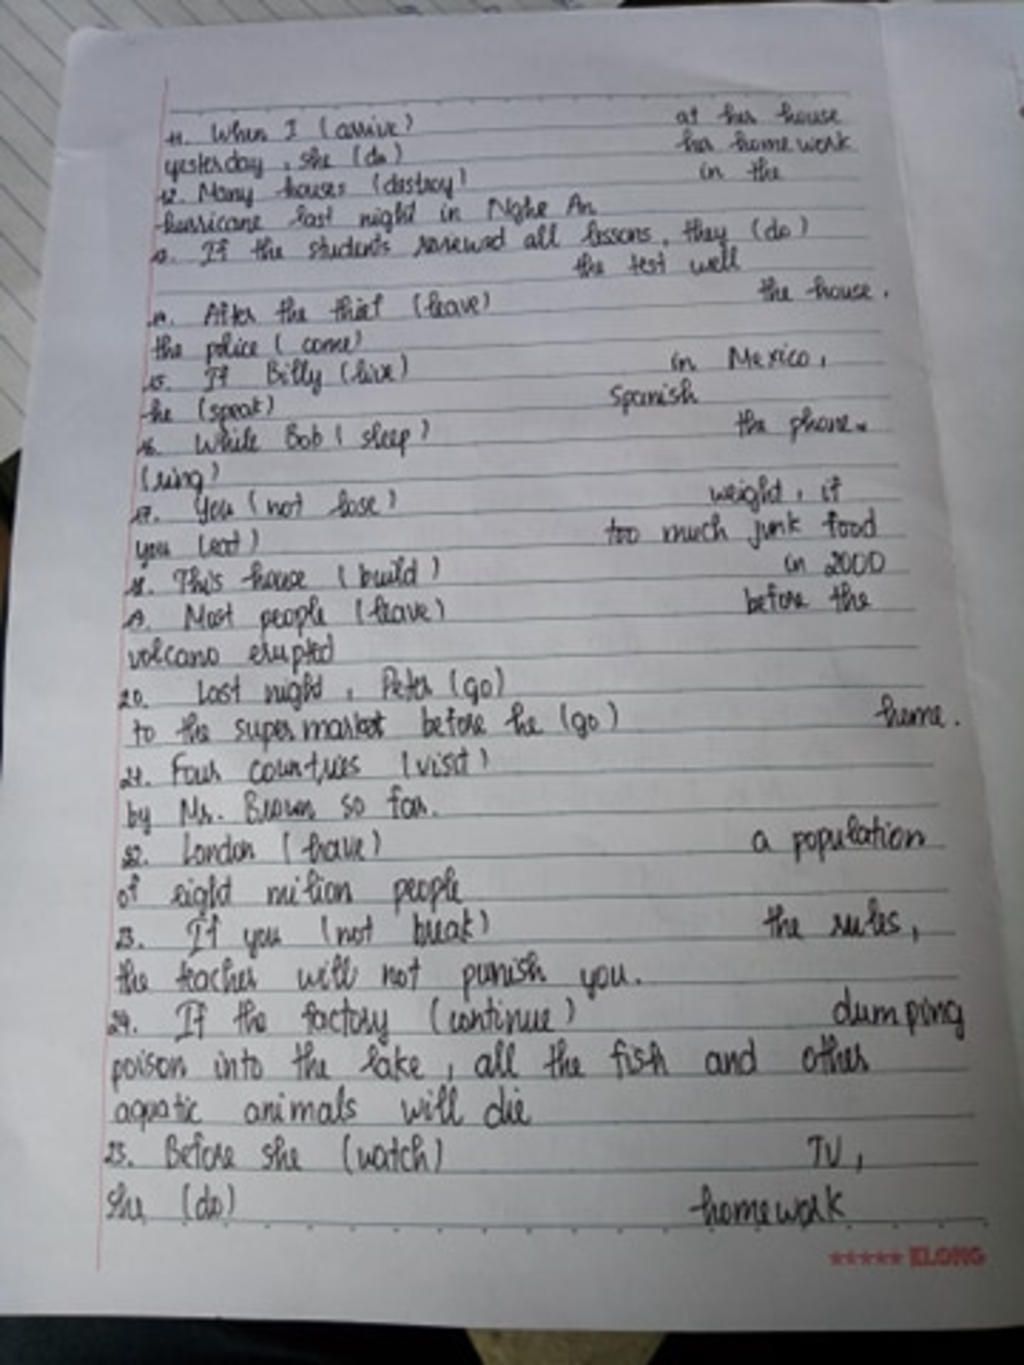 11. When I (arrive) at her house
yesterday, she (do) her homework
12. Many houses (destroy) in the
hurricane last night in Nghe An
13. If the students reviewed all lessons, they (do)
the test well
14. After the thief (leave) the house.
the police (come)
15. If Billy (live) in Mexico,
he (speak) Spanish
16. While Bob (sleep) the phone.
(ring)
17. You (not lose) weight, if
you (eat) too much junk food
18. This house (build) in 2000
19. Most people (leave) before the
volcano erupted
20. Last night, Peter (go)
to the supermarket before he (go) home.
21. Four countries (visit)
by Mr. Brown so far.
22. London (have) a population
of eight milion people
23. If you (not break) the rules,
the teacher will not punish you.
24. If the factory (continue) dumping
poison into the lake, all the fish and other
aquatic animals will die
25. Before she (watch) TV,
she (do) homework
ELONG